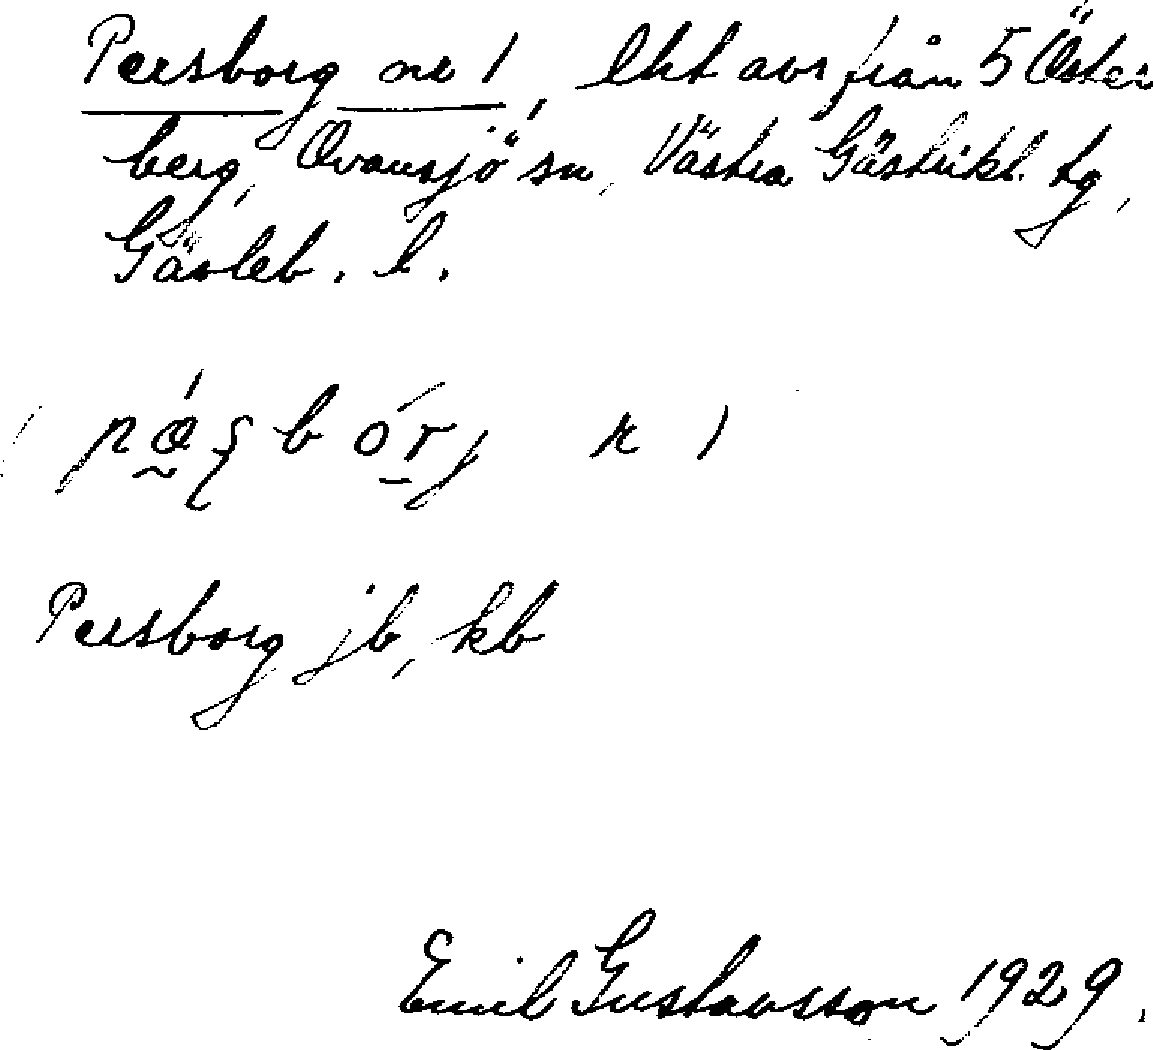 Persborg nr 1, lht avs från 5 Öster
berg, Ovansjö sn, Västra Gästrikl. tg,
Gävleb. l.
Persborg jb, kb
Emil Gustavsson 1929.